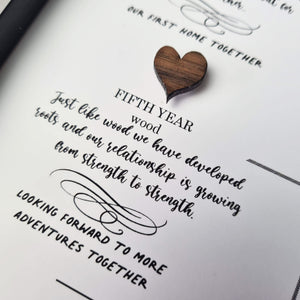 OUR FIRST HOME TOGETHER
FIFTH YEAR
wood
Just like wood we have developed
roots and our relationship is growing
from strength to strength.
LOOKING FORWARD TO MORE
ADVENTURES TOGETHER